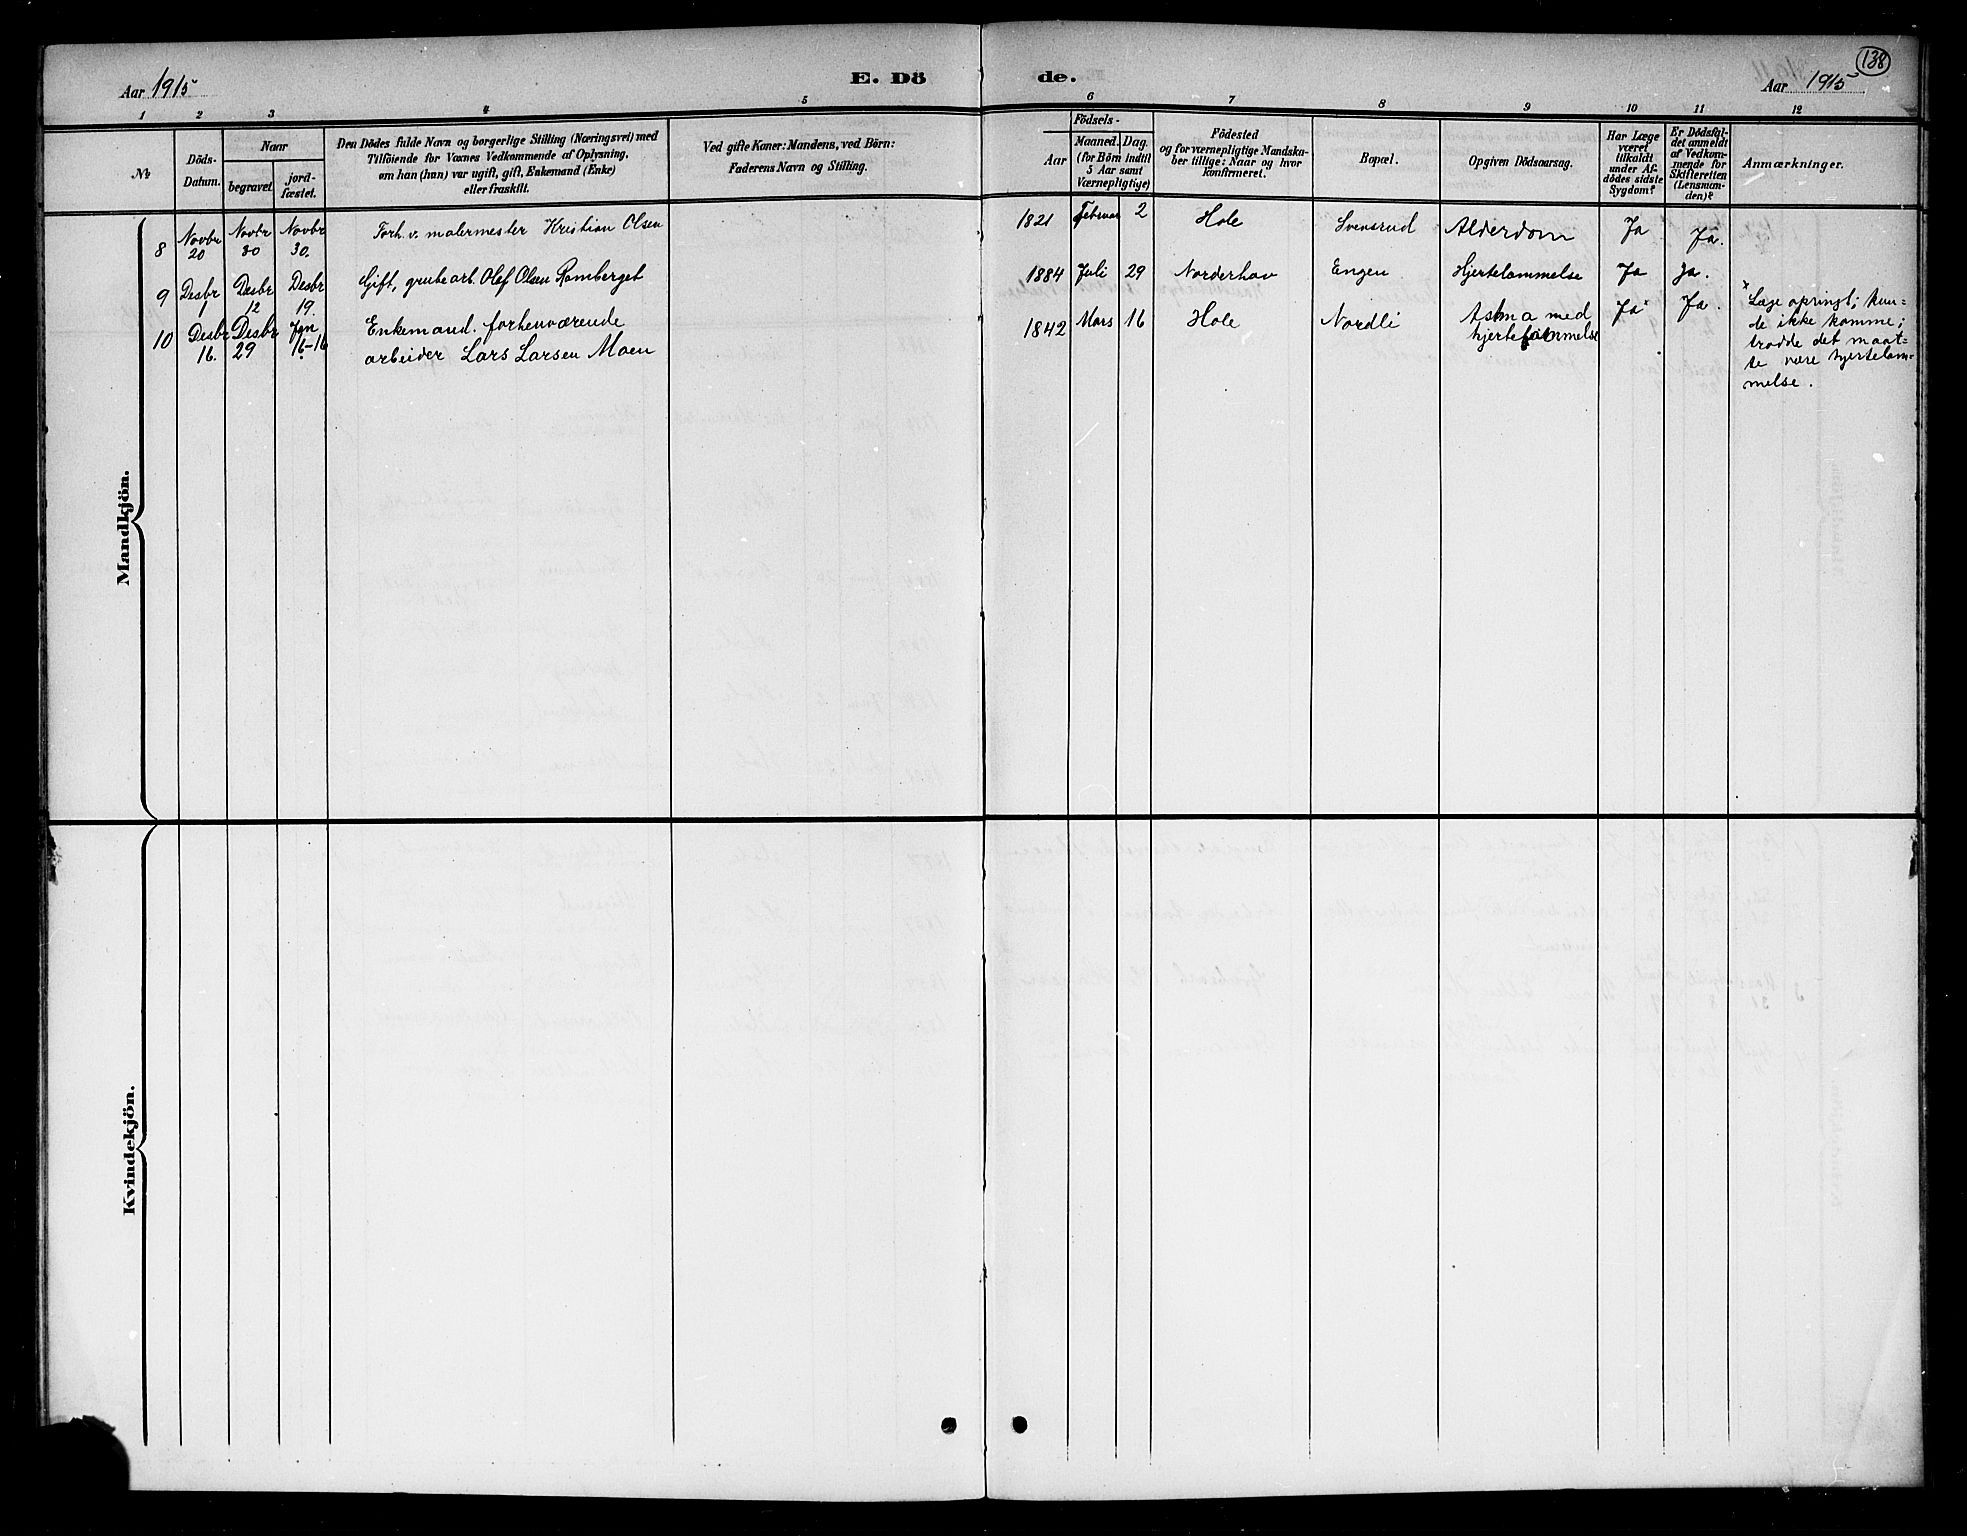 Aar 1915
E. Dö
de.
138
Aar 1915
1 2 3 4 5 6 7 8 9 10 11 12
№
Döds-
Datum.
Naar
begravet
jord-
fæstet.
Den Dödes fulde Navn og borgerlige Stilling (Næringsvei) med
Tilföiende for Voxnes Vedkommende af Oplysning,
om han (hun) var ugift, gift, Enkemand (Enke)
eller fraskilt.
Ved gifte Koner: Mandens, ved Börn:
Faderens Navn og Stilling.
Födsels-
Aar
Maaned. Dag.
(for Börn indtil
5 Aar samt
Værnepligtige)
Födested
og for værnepligtige Mandska-
ber tillige: Naar og hvor
konfirmeret.
Bopæl.
Opgiven Dödsaarsag.
Har Læge
været
tilkaldt
under Af-
dödes sidste
Sygdom?
Er Dödsfal-
det anmeldt
af Vedkom-
mende for
Skifteretten
(Lensman-
den)?
Anmærkninger.
Mandkjön.
8 Novbr 20 Novbr 30 Novbr 30. Forh. v. malermester Kristian Olsen 1821 Februar 2 Hole Svensrud Alderdom Ja Ja.
9 Desbr 1 Desbr 12 Desbr 19. Gift, grubearb. Olef Olsen Ramberget 1884 Juli 29 Norderhov Engen Hjertelammelse Ja Ja.
10 Desbr 16. Desbr 29 Jan 16-16 Enkemand. forhenværende
arbeider Lars Larsen Moen
1842 Mars 16 Hole Nordli Astma med
hjertelammelse
Ja* Ja.
* Læge opringt; kun-
de ikke komme;
trodde det maat-
te være hjertelam-
melse.
Kvindekjön.